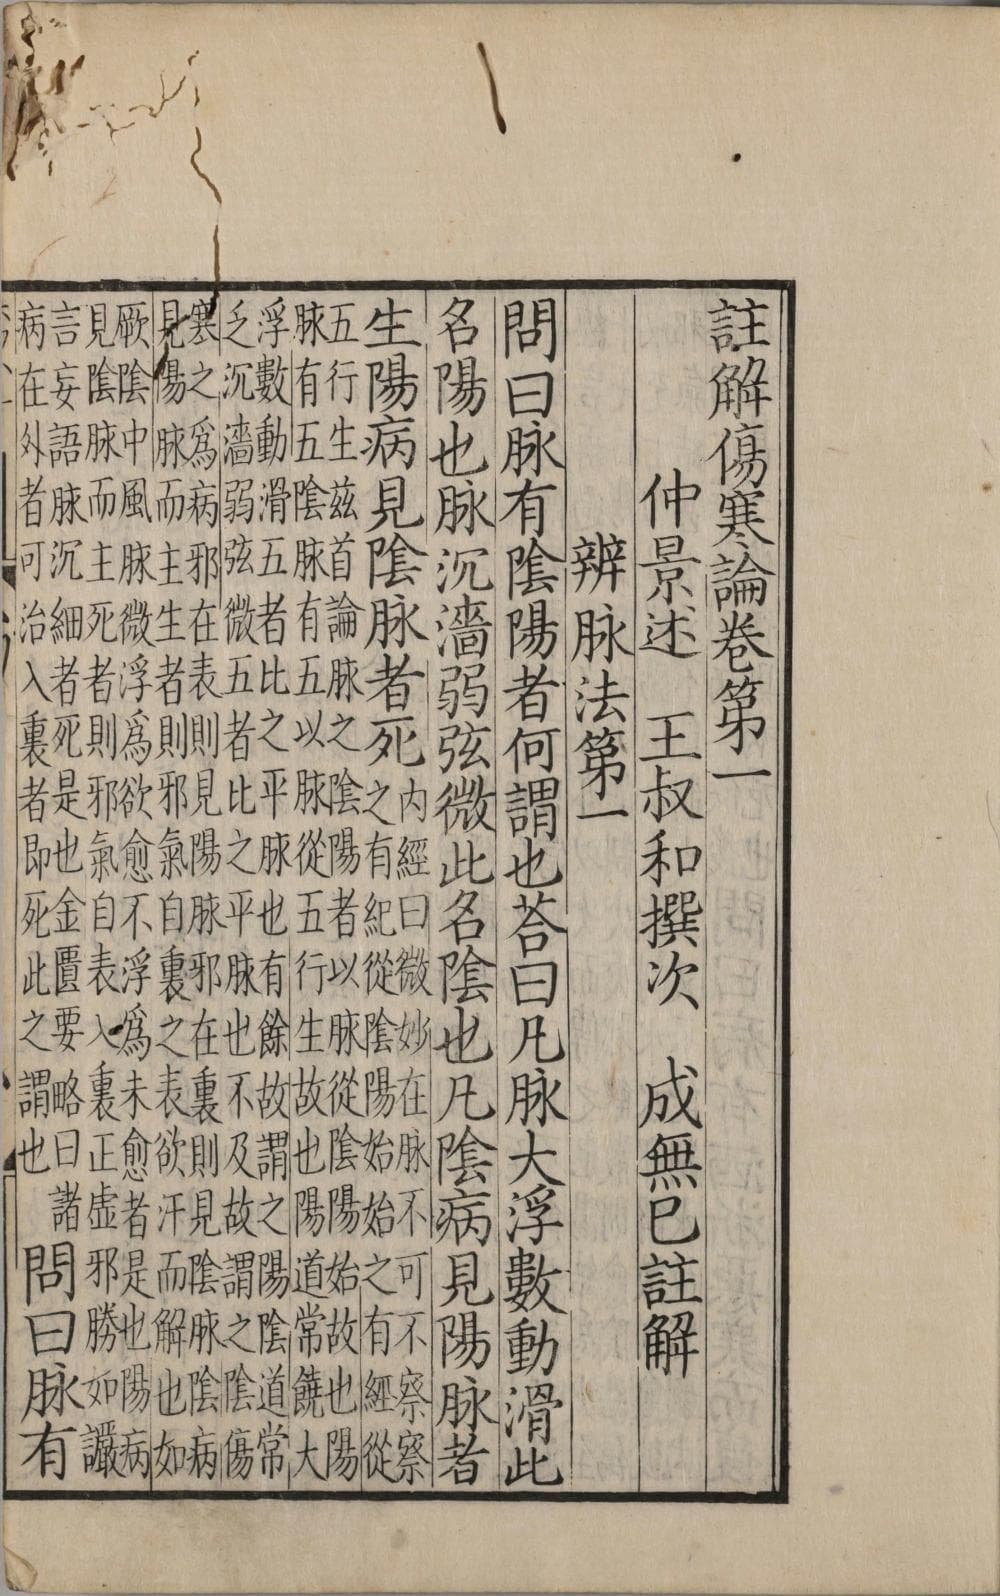 註解傷寒論卷第一
仲景述　王叔和撰次　成無已註解
辨脉法第一
問曰脉有陰陽者何謂也荅曰凡脉大浮數動滑此
名陽也脉沉濇弱弦微此名陰也凡陰病見陽脉者
生陽病見陰脉者死
內經曰微妙在脉不可不察察
之有紀從陰陽始始之有經從
五行生兹首論脉之陰陽者以脉從陰陽始故也陽
脉有五陰脉有五以脉從五行生故也陽道常饒大
浮數動滑五者比之平脉也有餘故謂之陽陰道常
乏沉濇弱弦微五者比之平脉也不及故謂之陰傷
寒之爲病邪在表則見陽脉邪在裏則見陰脉陰病
見陽脉而主生者則邪氣自裏之表欲汗而解也如
厥陰中風脉微浮爲欲愈不浮爲未愈者是也陽病
見陰脉而主死者則邪氣自表入裏正虛邪勝如讝
言妄語脉沉細者死是也金匱要略曰諸
病在外者可治入裏者即死此之謂也
問曰脉有